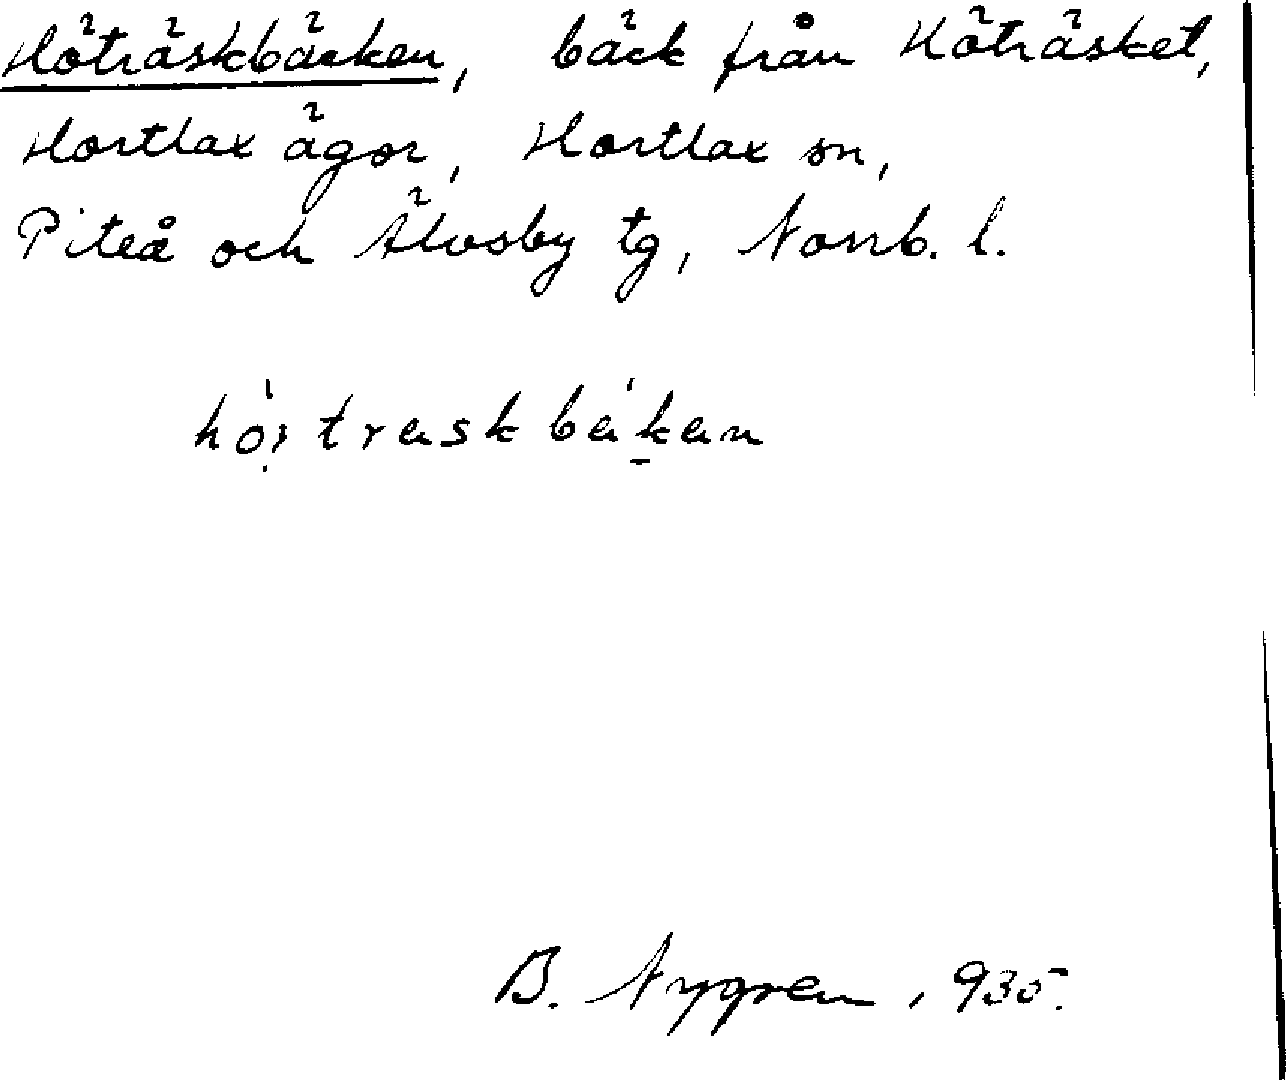 Höträskbäcken, bäck från Höträsket,
Hortlax ägor, Hortlax sn,
Piteå och Älvsby tg, Norrb. l.
B. Nygren, 935.